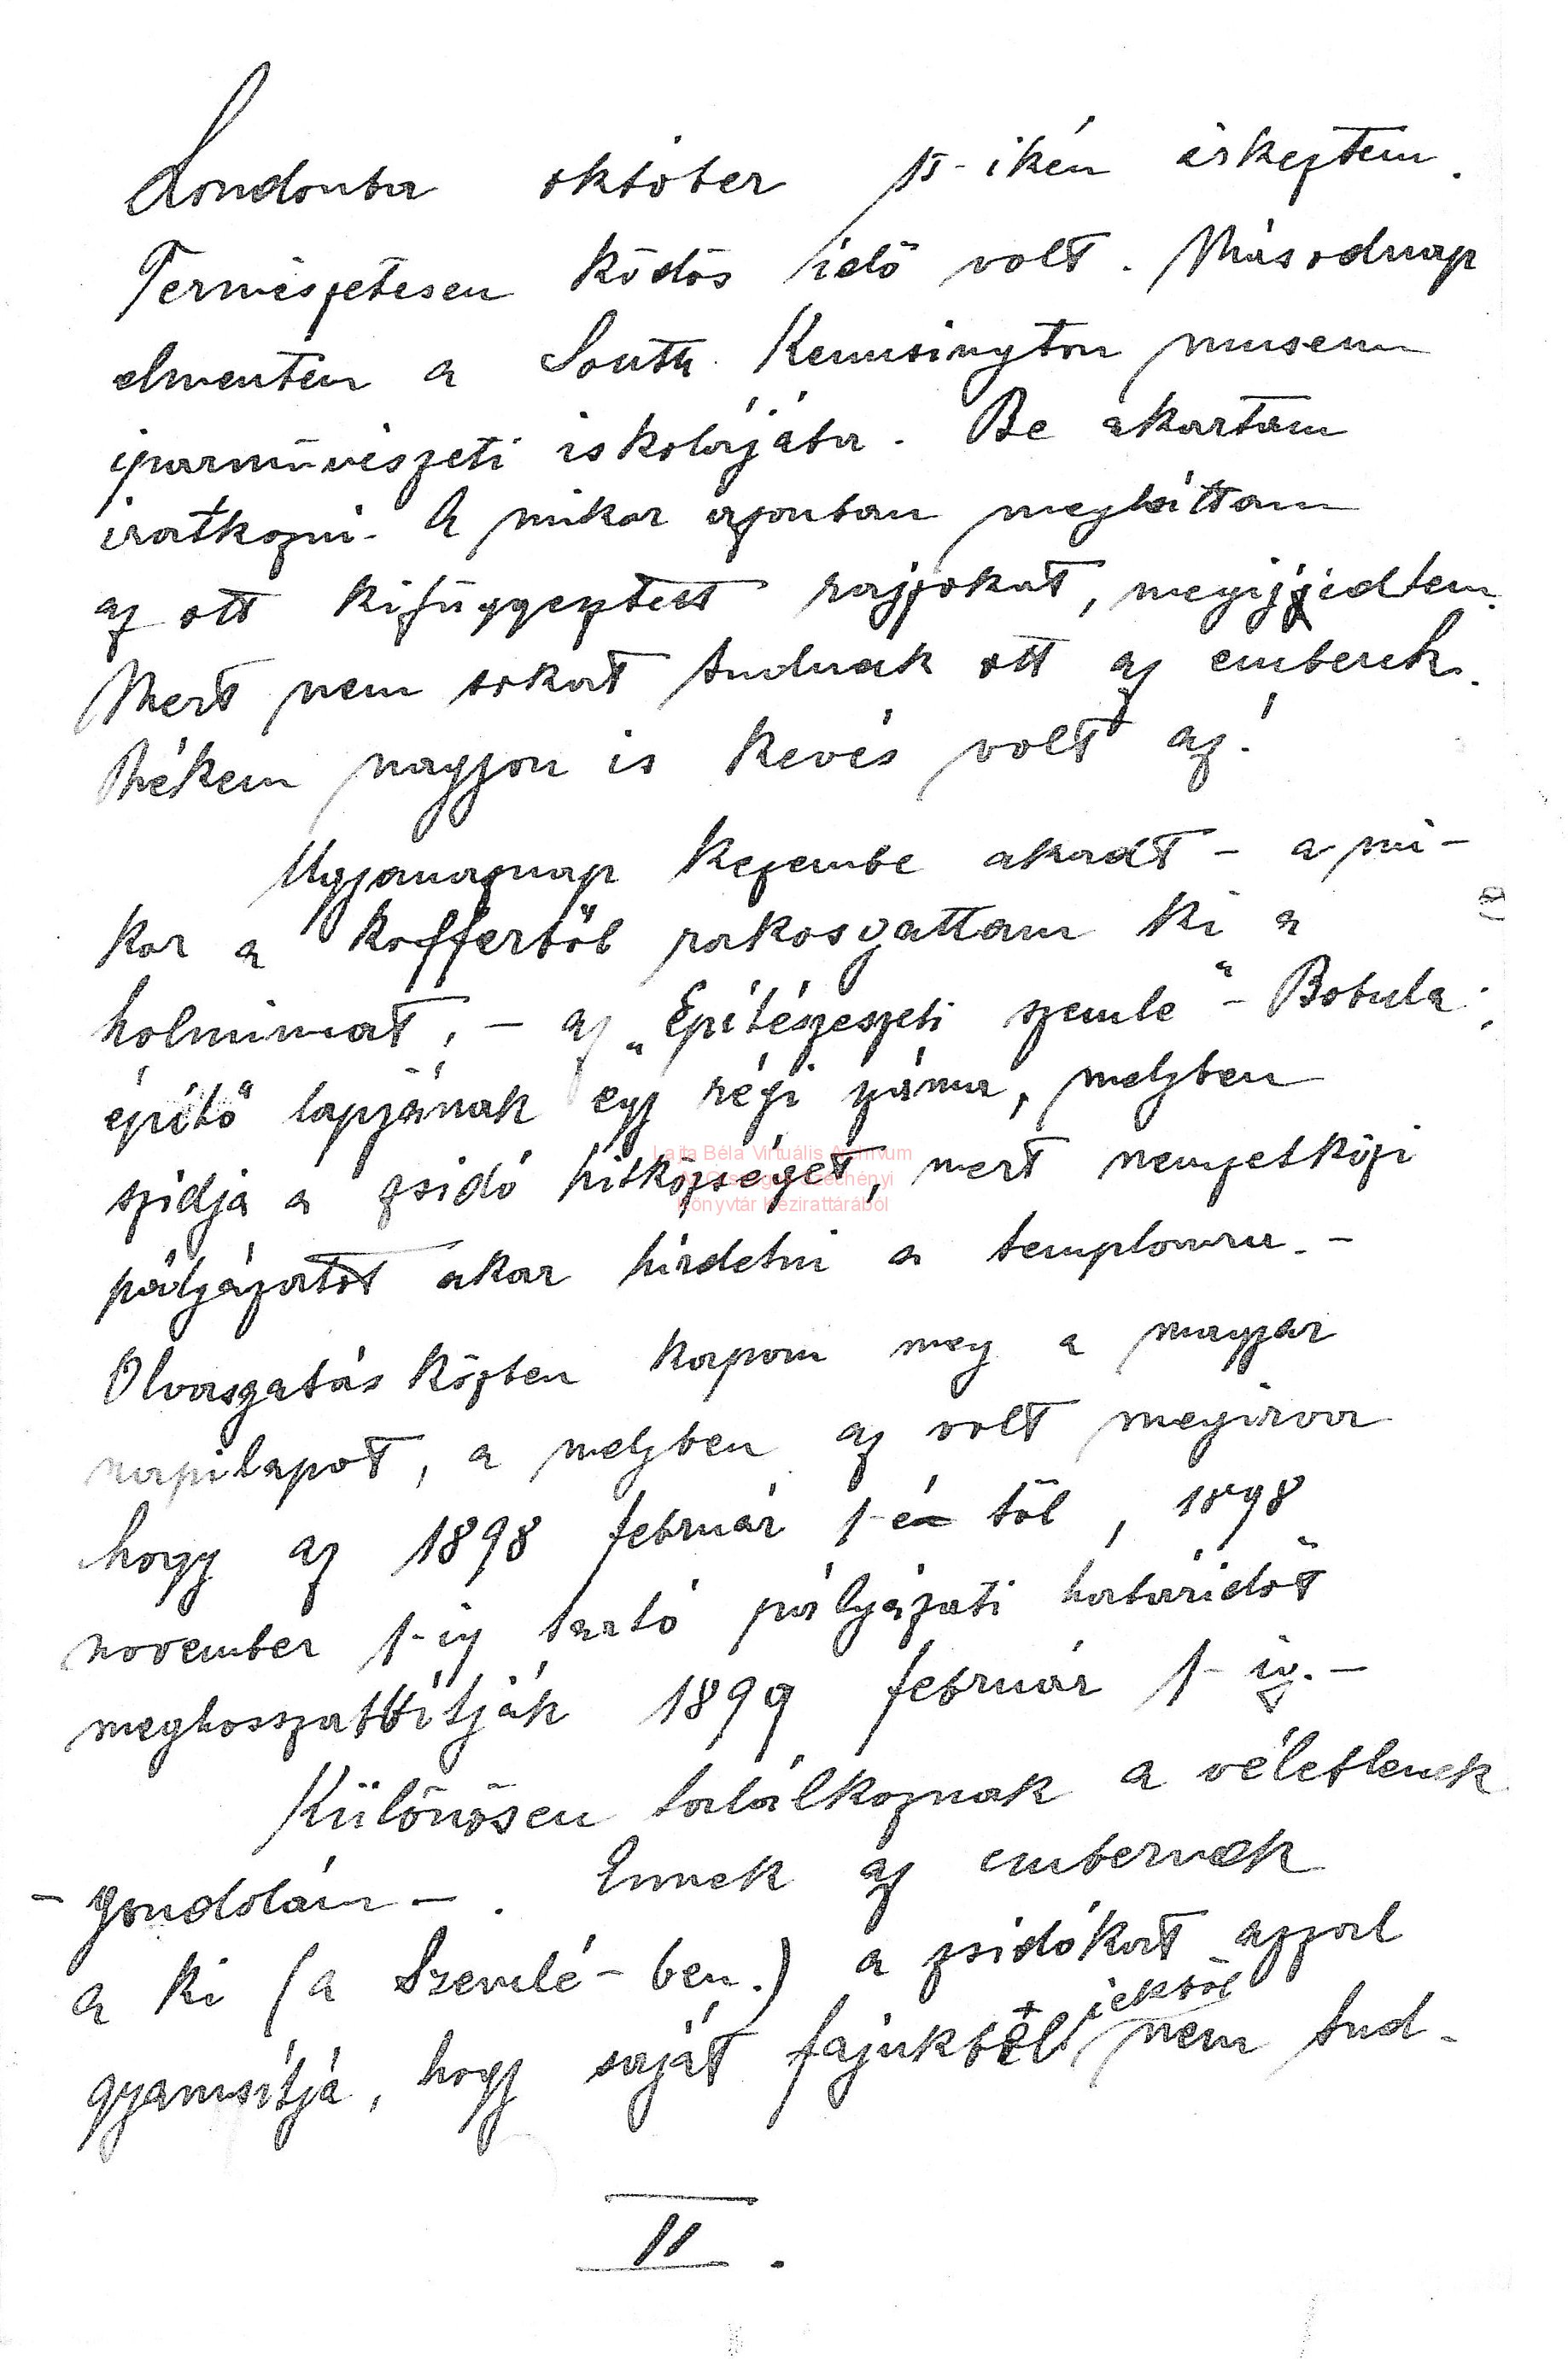 Londonba október 15-ikén érkeztem.
Természetesen ködös idő volt. Másodnap
elmentem a South Kennsington museum
iparművészeti iskolájába. Be akartam
iratkozni. A mikor azonban megláttam
az ott kifüggeztett rajzokat, megijjedtem.
Mert nem sokat tudnak ott az emberek.
Nékem nagyon is kevés volt az!
Ugyanaznap kezembe akadt – a mi-
kor a kofferböl rakosgattam ki a
holmimat, – az „Épitészeszeti szemle" – Bobula
épitő lapjának egy régi száma, melyben
szidja a zsidó hitközséget, mert nemzetközi
pályázatot akar hirdetni a templomra. –
Olvasgatás közben kapom meg a magyar
napilapot, a melyben az volt megirva
hogy az 1898 február 1-é től, 1898
november 1-ig tartó pályázati határidőt
meghosszabbitják 1899 február 1-ig. –
Különösen találkoznak a véletlenek
– gondolám –. Ennek az embernek
a ki (a Szemlé-ben.) a zsidókat azzal
jekböl
gyanusitja, hogy saját fajukból nem tud-
II.
Lajta Béla Virtuális Archívum
Az Országos Széchényi
Könyvtár Kézirattárából